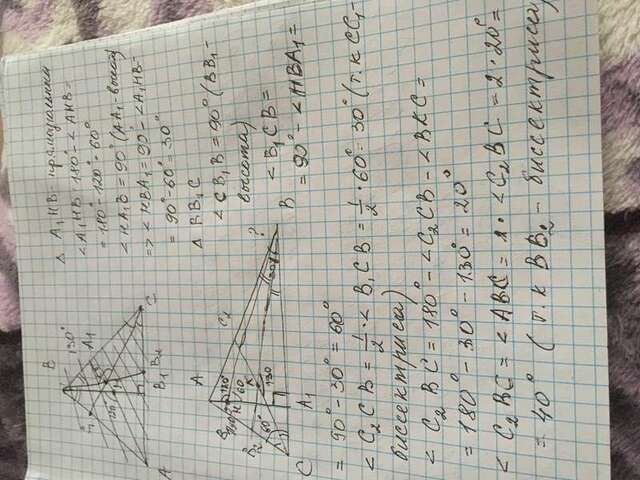 B
130°
A₁
120°
H
A
B₁ B₂
C
△ A₁HB - прямоугольный
∠A₁HB = 180° - ∠AHB =
= 180° - 120° = 60°
∠HA₁B = 90° (AA₁ - высота)
=> ∠HBA₁ = 90° - ∠A₁HB =
= 90° - 60° = 30°
△ BB₁C
∠CB₁B = 90° (BB₁ -
высота)
∠B₁CB =
= 90° - ∠HBA₁ =
A
120°
H
60
C₂
K
B₂
60°
130
?
C
A₁
B
= 90° - 30° = 60°
∠C₂CB = 1/2 · ∠B₁CB = 1/2 · 60° = 30° (т.к CC₁ -
биссектриса)
∠C₂BC = 180° - ∠C₂CB - ∠BKC =
= 180° - 30° - 130° = 20°
∠C₂BC = ∠ABC = 2 · ∠C₂BC = 2 · 20° =
= 40° (т.к BB₂ - биссектриса)